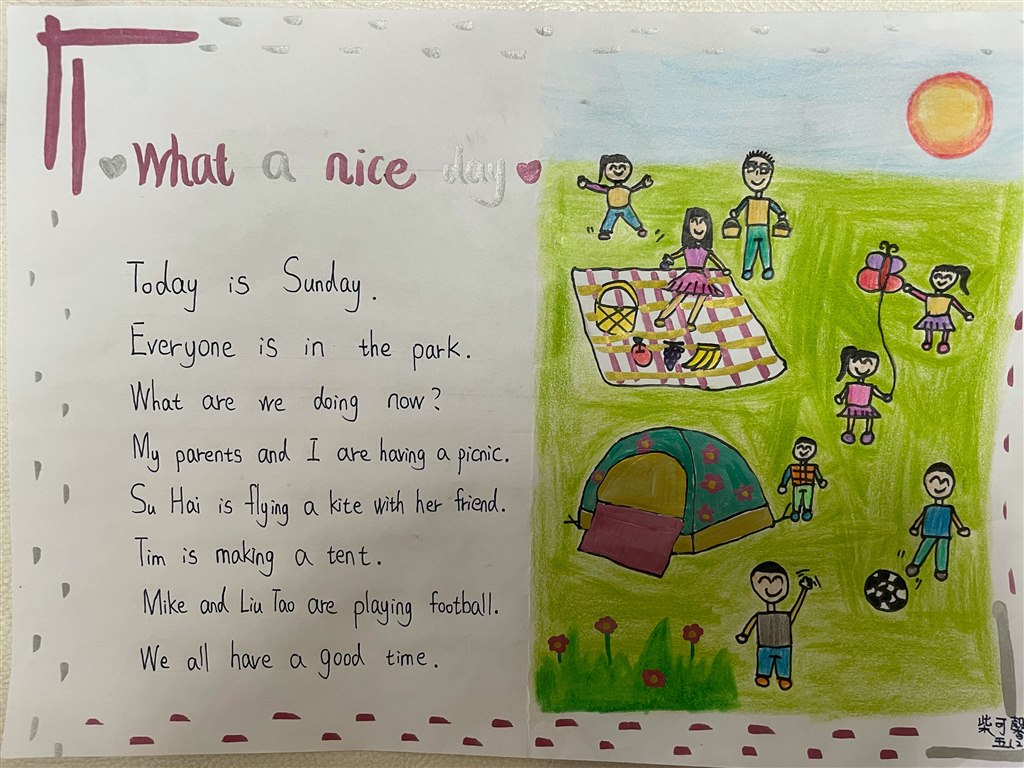 What a nice day
Today is Sunday.
Everyone is in the park.
What are we doing now?
My parents and I are having a picnic.
Su Hai is flying a kite with her friend.
Tim is making a tent.
Mike and Liu Tao are playing football.
We all have a good time.
柴可馨